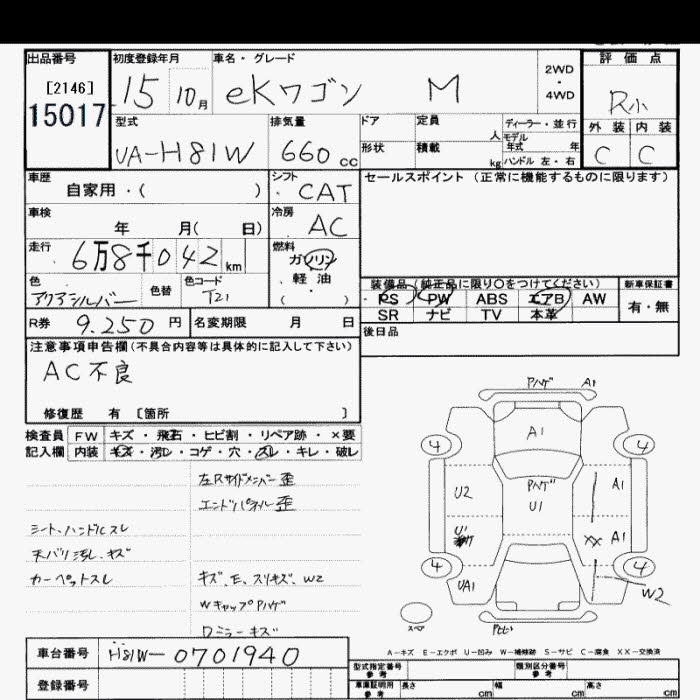 出品番号 初度登録年月 車名・グレード 評価点
[2146]
15017
15 10月 eKワゴン M 2WD・4WD R小
型式 排気量 ドア 定員 人 ディーラー・並行 外装 内装
UA-H81W 660cc 形状 積載 kg モデル年式 年 ハンドル 左・右 C C
車歴 自家用・( ) シフト CAT セールスポイント(正常に機能するものに限ります)
車検 年 月( 日) 冷房 AC
走行 6万8千042km 燃料 ガソリン・軽油・( )
色 アクアシルバー 色替 色コード T21
装備品(純正品に限り○をつけてください) 新車保証書
PS PW ABS エアB AW 有・無
SR ナビ TV 本革
R券 9.250円 名変期限 月 日 後日品
注意事項申告欄(不具合内容等は具体的に記入して下さい)
AC不良
修復歴 有 [箇所 ]
検査員 FW キズ・飛石・ヒビ割・リペア跡・×要
記入欄 内装 キズ・汚レ・コゲ・穴・スレ・キレ・破レ
左Rサイドメンバー歪
エンドパネル歪
シート、ハンドルスレ
天バリ汚レ、キズ
カーペットスレ
キズ、E、スリキズ、W2
WキャップPハゲ
ワニラーキズ
Pハゲ A1
A1
4 4
U2 Pハゲ U1 A1
U1 XX A1
4 4
UA1 W2
スペア
A-キズ E-エクボ U-凹み W-補修跡 S-サビ C-腐食 XX-交換済
車台番号 H81W-0701940
型式指定番号 参考 類別区分番号 参考
登録番号 車庫証明用 参考 長さ cm 幅 cm 高さ cm